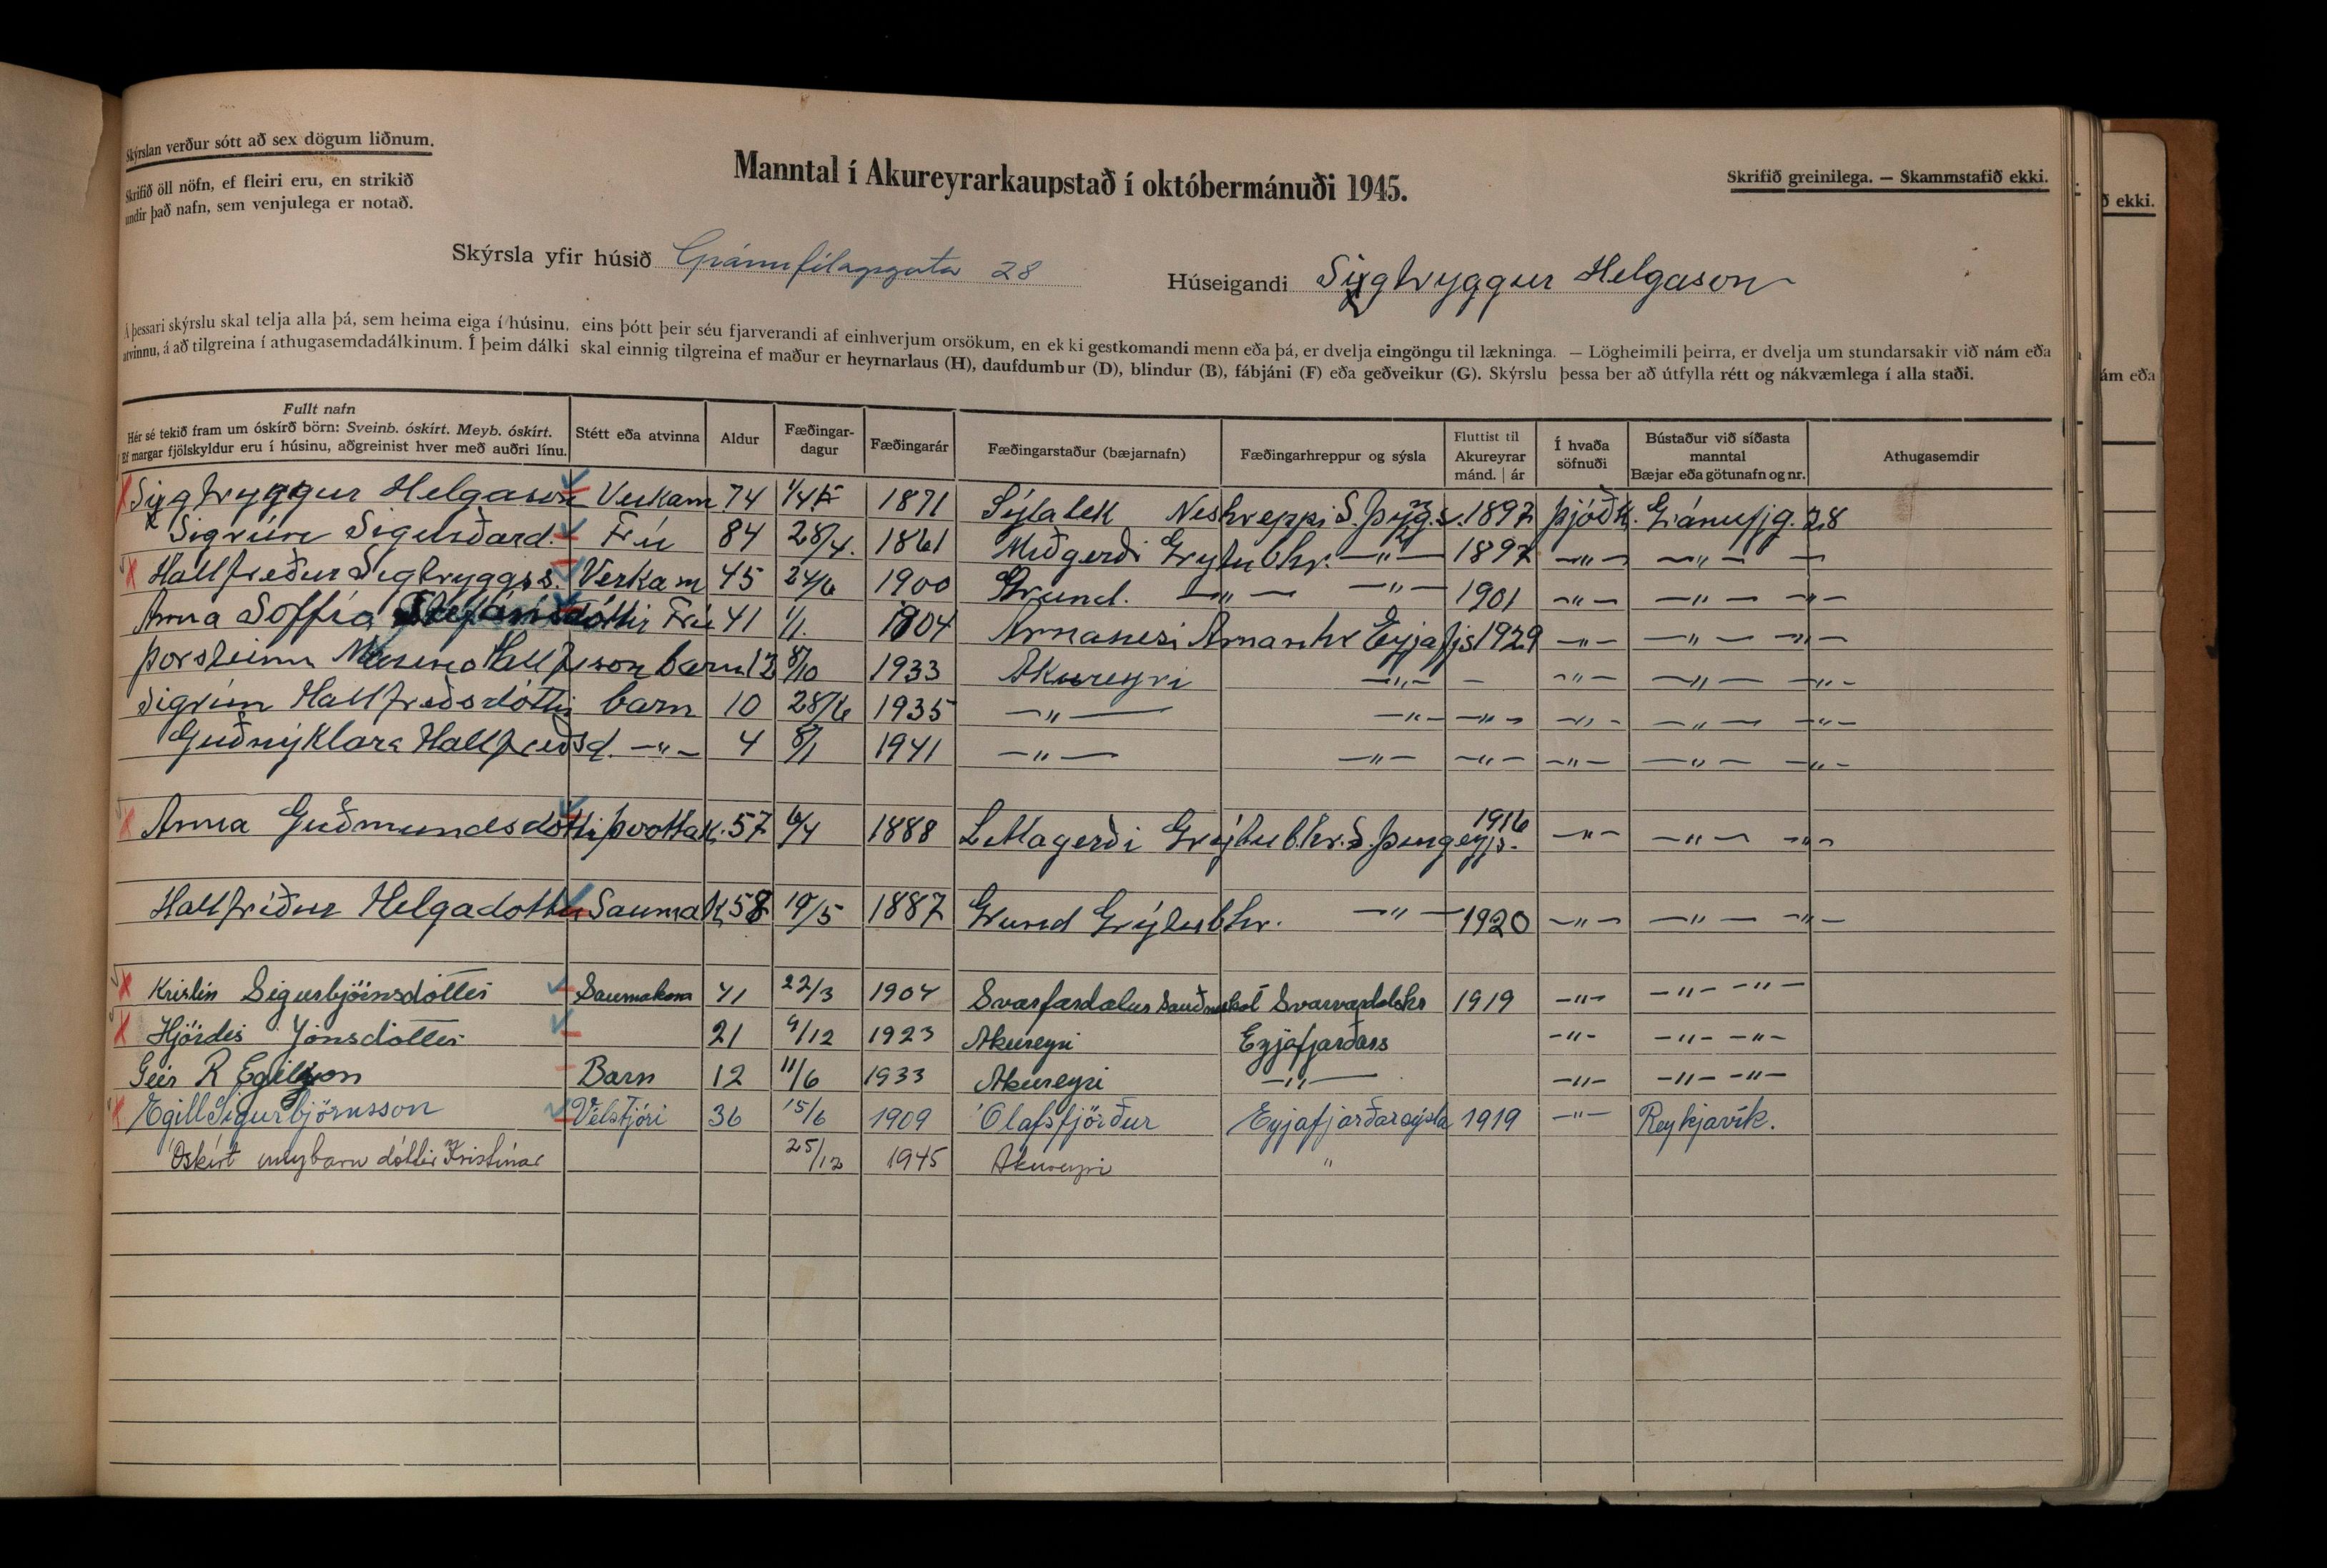 Skýrslan verður sótt að sex dögum liðnum.
Skrifið öll nöfn, ef fleiri eru, en strikið
undir það nafn, sem venjulega er notað.
Manntal í Akureyrarkaupstað í októbermánuði 1945.
Skrifið greinilega. — Skammstafið ekki.
ð ekki.
Skýrsla yfir húsið Gránufélagsgata 28 Húseigandi Sigtryggur Helgason
Á þessari skýrslu skal telja alla þá, sem heima eiga í húsinu, eins þótt þeir séu fjarverandi af einhverjum orsökum, en ekki gestkomandi menn eða þá, er dvelja eingöngu til lækninga. — Lögheimili þeirra, er dvelja um stundarsakir við nám eða
atvinnu, á að tilgreina í athugasemdadálkinum. Í þeim dálki skal einnig tilgreina ef maður er heyrnarlaus (H), daufdumbur (D), blindur (B), fábjáni (F) eða geðveikur (G). Skýrslu þessa ber að útfylla rétt og nákvæmlega í alla staði.
ám eða
Fullt nafn
Hér sé tekið fram um óskírð börn: Sveinb. óskírt. Meyb. óskírt.
Ef margar fjölskyldur eru í húsinu, aðgreinist hver með auðri línu.
Stétt eða atvinna
Aldur
Fæðingar-
dagur
Fæðingarár
Fæðingarstaður (bæjarnafn)
Fæðingarhreppur og sýsla
Fluttist til
Akureyrar
mánd. | ár
Í hvaða
söfnuði
Bústaður við síðasta
manntal
Bæjar eða götunafn og nr.
Athugasemdir
Sigtryggur Helgason Verkam 74 1/4 1871 Sýlalæk Neshreppi S. Þing.s. 1897 Þjóðk. Gránufjg. 28
Sigrún Sigurðard. Frú 84 28/4. 1861 Miðgerði Grýtubhr. —"— 1897 —"— —"— —
Hallfreður Sigtryggss. Verkam 45 24/6 1900 Grund. —"— —"— 1901 —"— —"— —"—
Anna Soffía Stefánsdóttir Frú 41 1/1. 1904 Arnanesi Arnanhr Eyjafjs 1929 —"— —"— —"—
Þorsteinn Marino Hallfreson barn 12 8/10 1933 Akureyri —"— — —"— —"— —"—
Sigrún Hallfreðsdóttir barn 10 28/6 1935 —"— —"— —"— —"— —"— —"—
Guðný Klara Hallfreðsd. —"— 4 8/1 1941 —"— —"— —"— —"— —"— —"—
Anna Guðmundsdóttir þvottak. 57 6/4 1888 Lettagerði Grýtub.hr. S. Þingeyjs. 1916 —"— —"— —"—
Hallfríður Helgadóttir Saumak. 58 19/5 1887 Grund Grýtubhr. —"— 1920 —"— —"— —"—
Kristín Sigurbjörnsdóttir Saumakona 41 22/3 1904 Svarfardalur Sauðnakot Svarvardalshr 1919 —"— —"— —"—
Hjördís Jónsdóttir 21 9/12 1923 Akureyri Eyjafjarðars —"— —"— —"—
Geir R Egilson Barn 12 11/6 1933 Akureyri —"— —"— —"— —"—
Egill Sigurbjörnsson Vélstjóri 36 15/6 1909 Ólafsfjörður Eyjafjarðarsýsla 1919 —"— Reykjavík.
Óskírt meybarn dóttir Kristínar 25/12 1945 Akureyri "